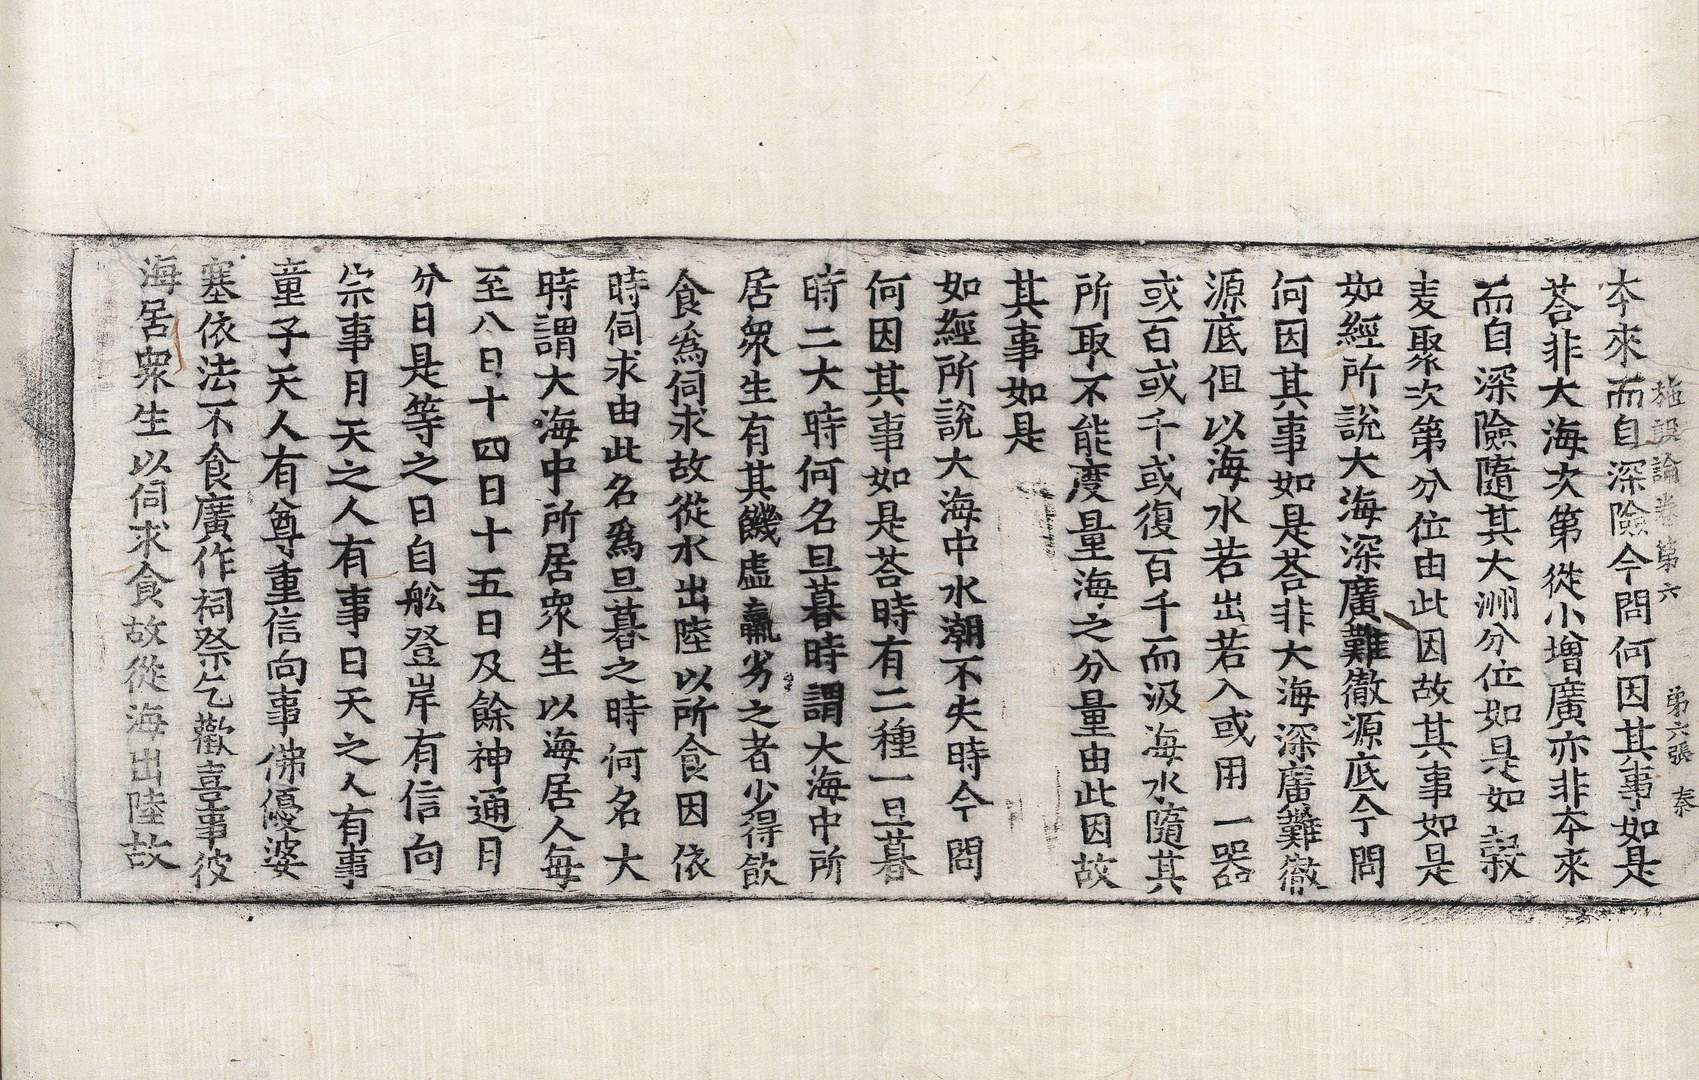 施設論卷第六 第六張 泰
夲來而自深險今問何因其事如是
荅非大海次第從小增廣亦非夲來
而自深險隨其大洲分位如是如穀
麦聚次第分位由此因故其事如是
如經所説大海深廣難徹源底今問
何因其事如是荅非大海深廣難徹
源底但以海水若出若入或用一器
或百或千或復百千而汲海水隨其
所取不能度量海之分量由此因故
其事如是
如經所説大海中水潮不失時今問
何因其事如是荅時有二種一旦暮
時二大時何名旦暮時謂大海中所
居衆生有其饑虛羸劣之者少得飲
食為伺求故從水出陸以所食因依
時伺求由此名為旦暮之時何名大
時謂大海中所居衆生以海居人每
至八日十四日十五日及餘神通月
分日是等之日自舩登岸有信向
宗事月天之人有事日天之人有事
童子天人有尊重信向事佛優婆
塞依法不食廣作祠祭乞歡喜事彼
海居衆生以伺求食故從海出陸故